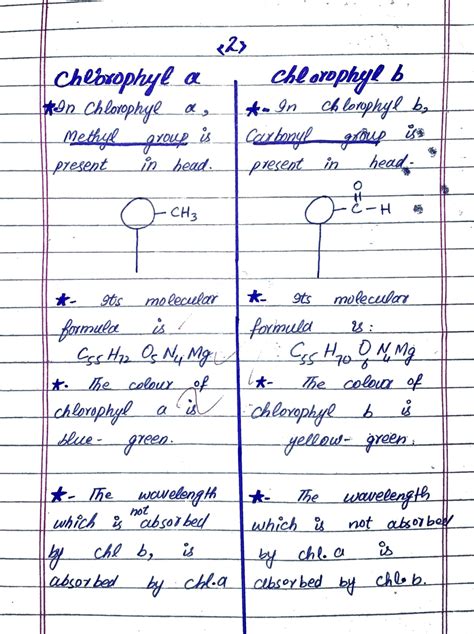 <2>
Chlorophyl a
*In Chlorophyl a,
Methyl group is
present in head.
- CH3
*- Its molecular
formula is
C55 H72 O5 N4 Mg
*. The colour of
chlorophyl a is
blue- green.
*- The wavelength
which is not absorbed
by chl b, is
absorbed by chl.a
Chlorophyl b
*- In chlorophyl b,
Carbonyl group is
present in head.
O
- C - H
*- Its molecular
formula is:
C55 H70 O6 N4 Mg
*- The colour of
chlorophyl b is
yellow- green.
*- The wavelength
which is not absorbed
by chl.a is
absorbed by chl.b.